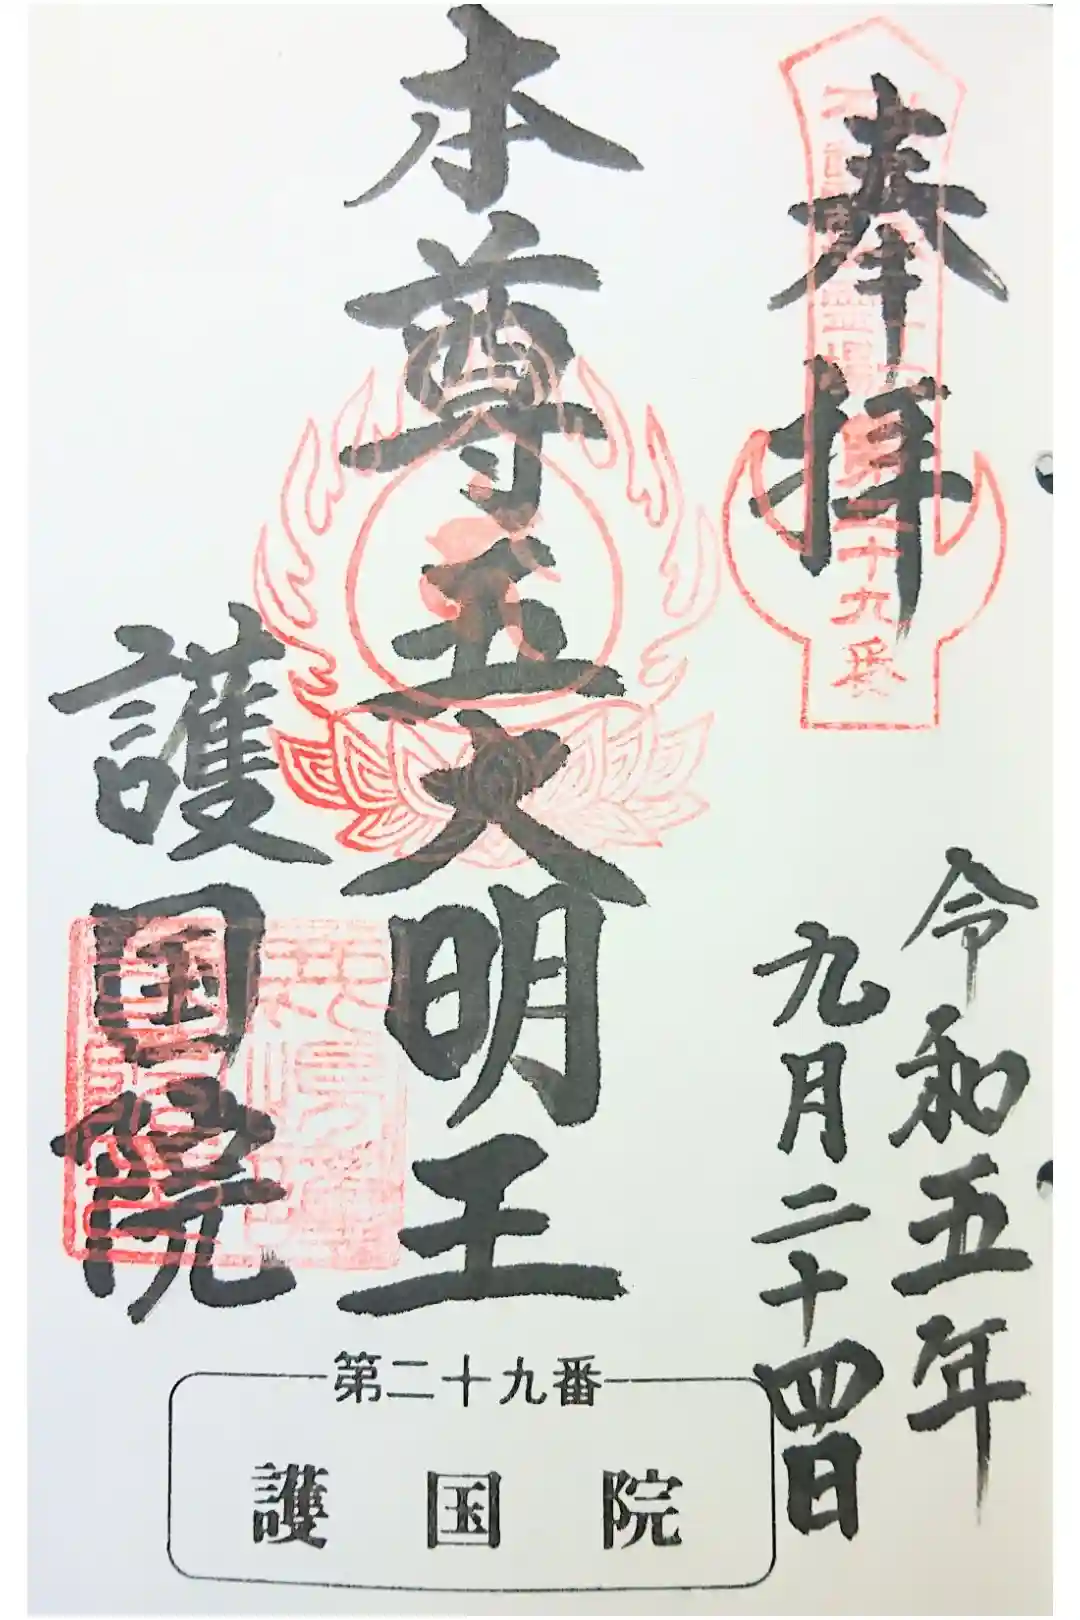 奉拝
第二十九番
令和五年
九月二十四日
本尊五大明王
護国院
第二十九番
護国院